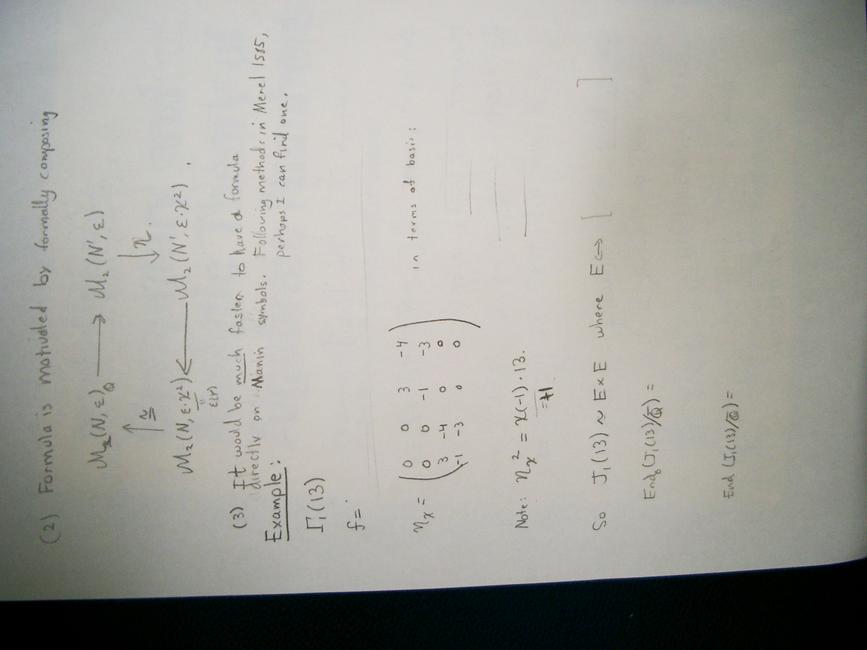 (2) Formula is motivated by formally composing
M₂(N, ε)_Q → M₂(N', ε)
↑ ≅ ↓ η.
M₂(N, ε·χ²) ← M₂(N', ε·χ²).
(3) It would be much faster to have a formula
directly on Manin symbols. Following methods in Merel 1585,
perhaps I can find one.
Example:
Γ₁(13)
f =
η_χ = ( 0 0 3 -4
0 0 -1 -3
3 -4 0 0
-1 -3 0 0 ) in terms of basis:
Note: η_χ² = χ(-1)·13.
=+1
So J₁(13) ~ E×E where E ↔ [ ]
End₀(J₁(13)/Q̄) =
End (J₁(13)/Q̄) =